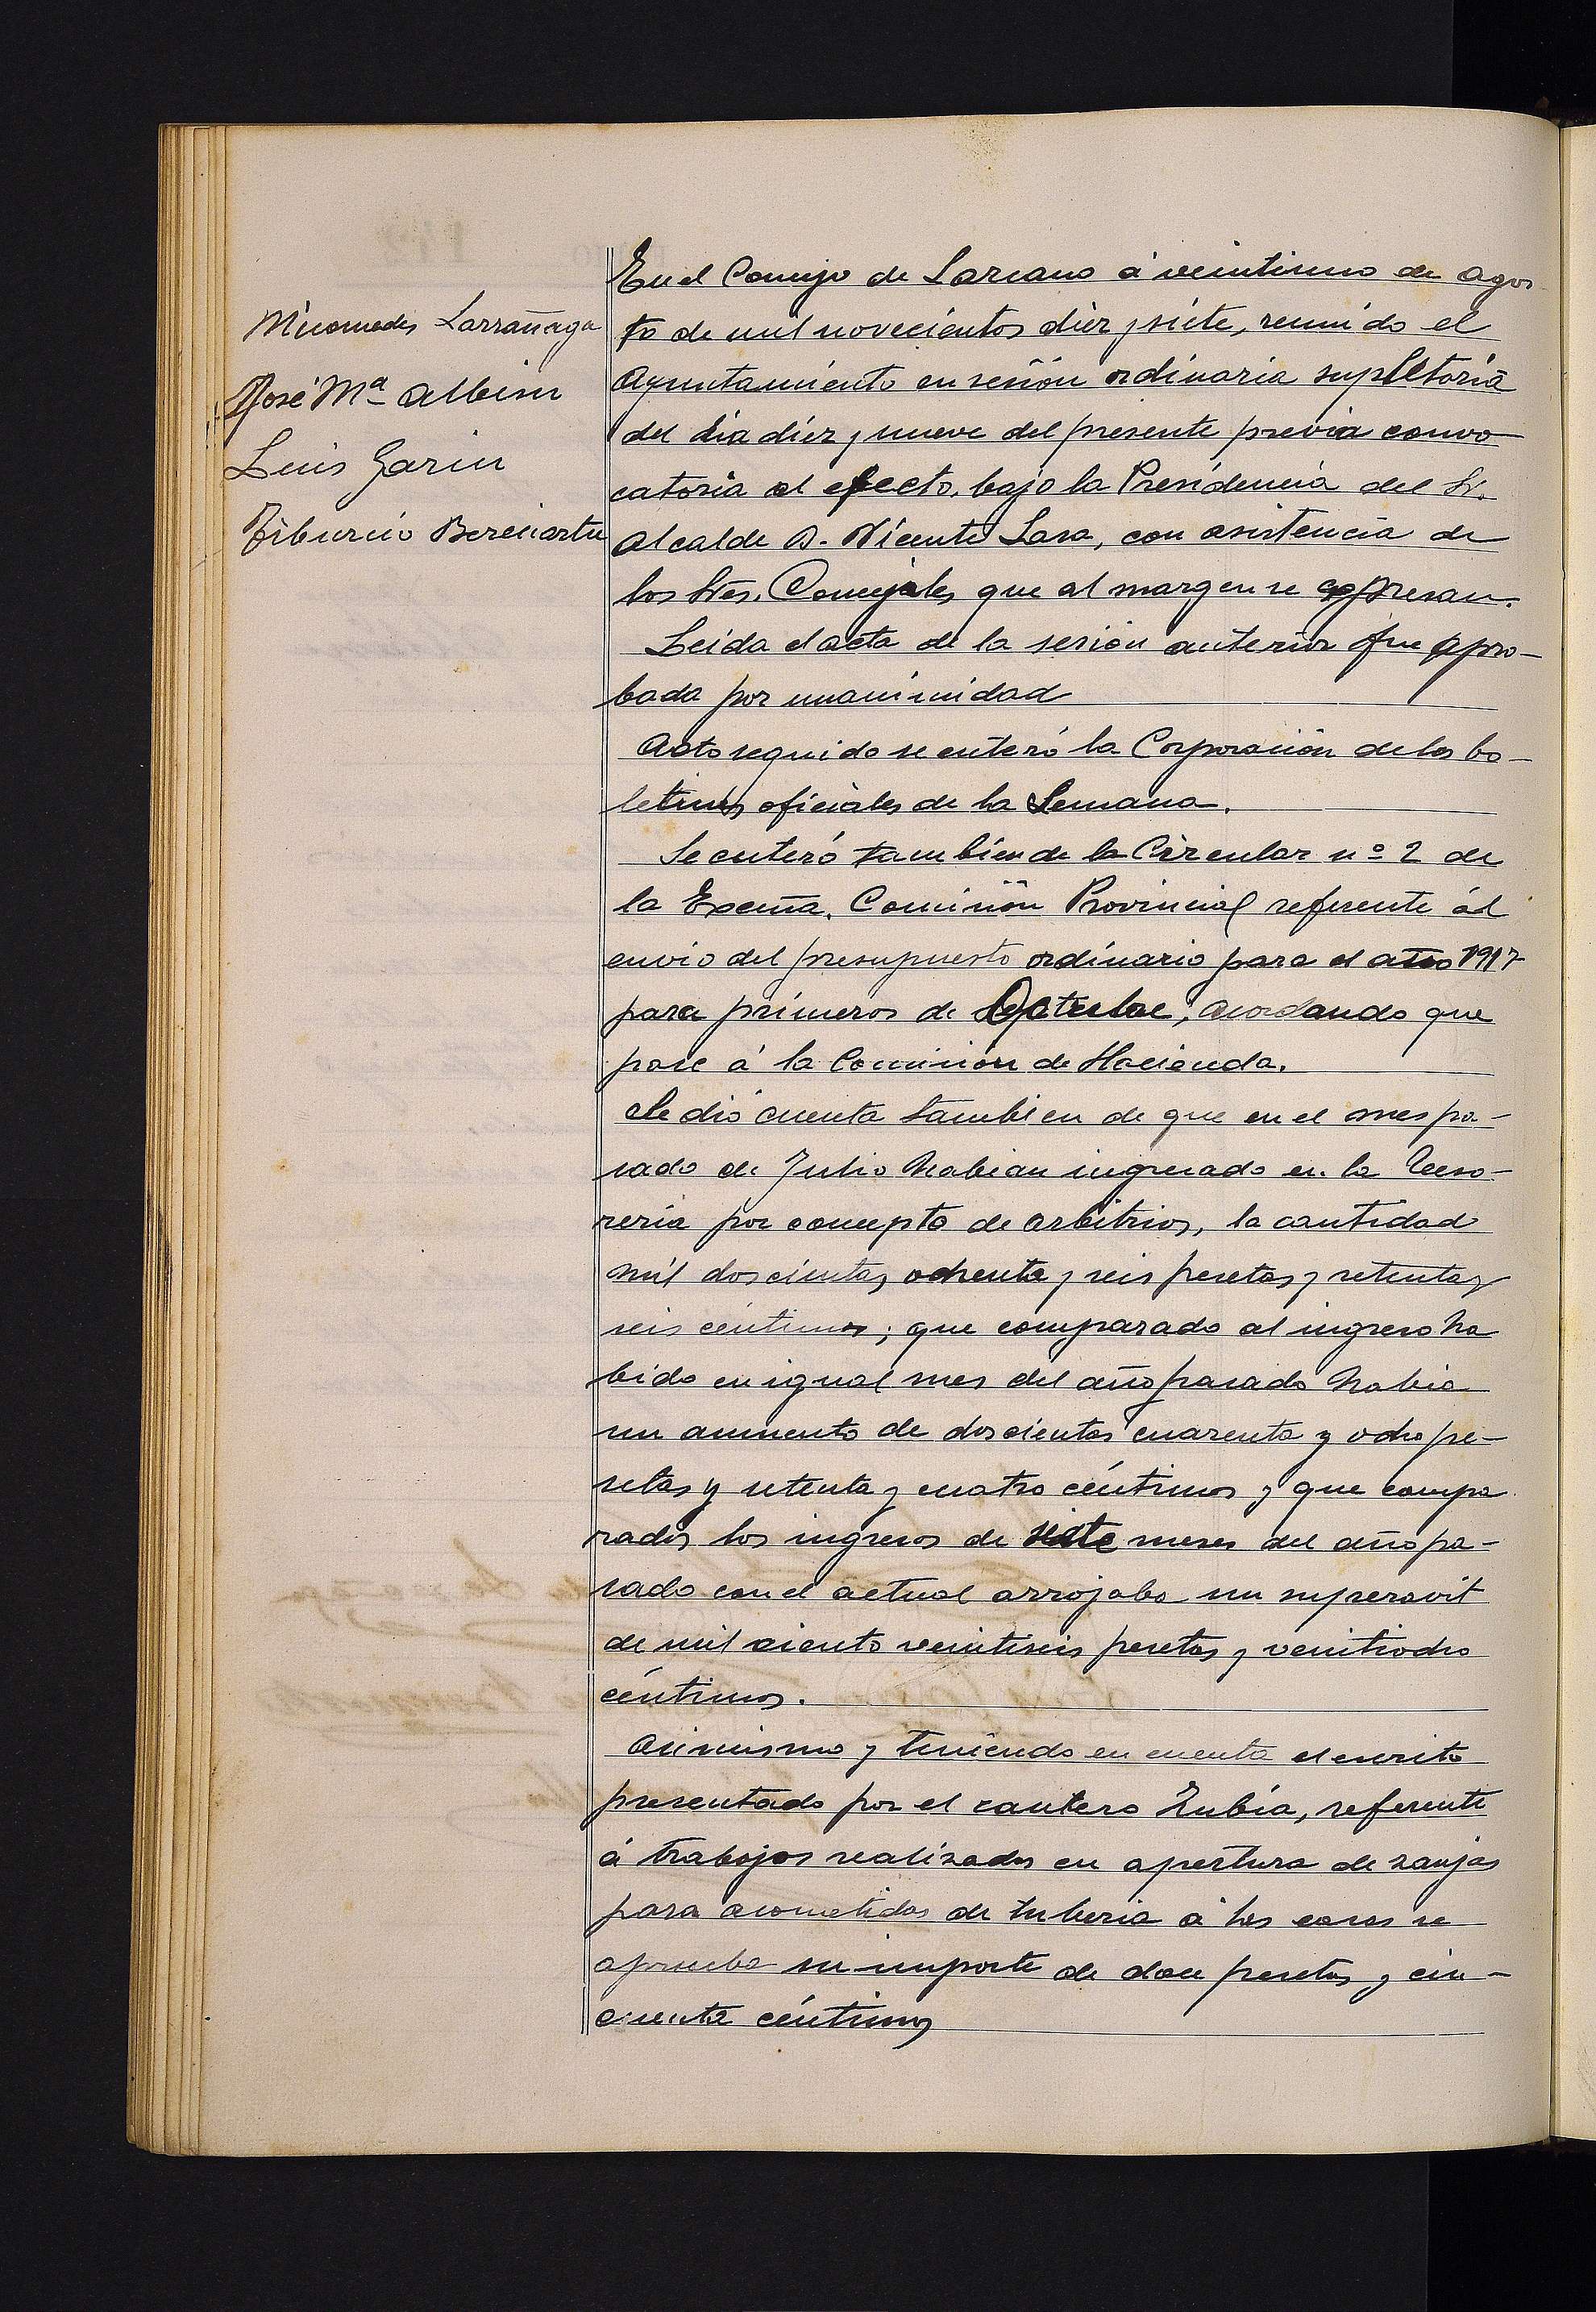 Nicomedes Larrañaga
José Mª Albisu
Luis Garin
Tiburcio Bereciartu
En el Concejo de Lazcano á veintiuno de agos
to de mil novecientos diez y siete, reunido el
Ayuntamiento en sesión ordinaria supletoria
del dia diez y nueve del presente previa convo
catoria al efecto, bajo la Presidencia del Sr.
Alcalde D. Vicente Lasa, con asistencia de
los Sres. Concejales que al margen se expresan.
Leida el acta de la sesión anterior fue apro-
bada por unanimidad
Acto seguido se enteró la Corporación de los bo-
letines oficiales de la Semana.
Se enteró tambien de la Circular nº 2 de
la Excma. Comisión Provincial referente ál
envio del presupuesto ordinario para el año 1917
para primeros de Octubre; acordando que
pase á la Comisión de Hacienda.
Se dió cuenta tambien de que en el mes pa-
sado de Julio habian ingresado en la Teso-
reria por concepto de arbitrios, la cantidad
mil doscientas ochenta y seis pesetas y setenta y
seis céntimos; que comparado al ingreso ha
bido en igual mes del año pasado habia
un aumento de doscientas cuarenta y ocho pe-
setas y setenta y cuatro céntimos y que compa
rados los ingresos de siete meses del año pa-
sado con el actual arrojaba un superavit
de mil ciento veintiseis pesetas y veintiocho
céntimos.
Asimismo y teniendo en cuenta el escrito
presentado por el cantero Zubía, referente
á trabajos realizados en apertura de zanjas
para acometidas de tuberia á las casas se
aprueba su importe de doce pesetas y cin-
cuenta céntimos